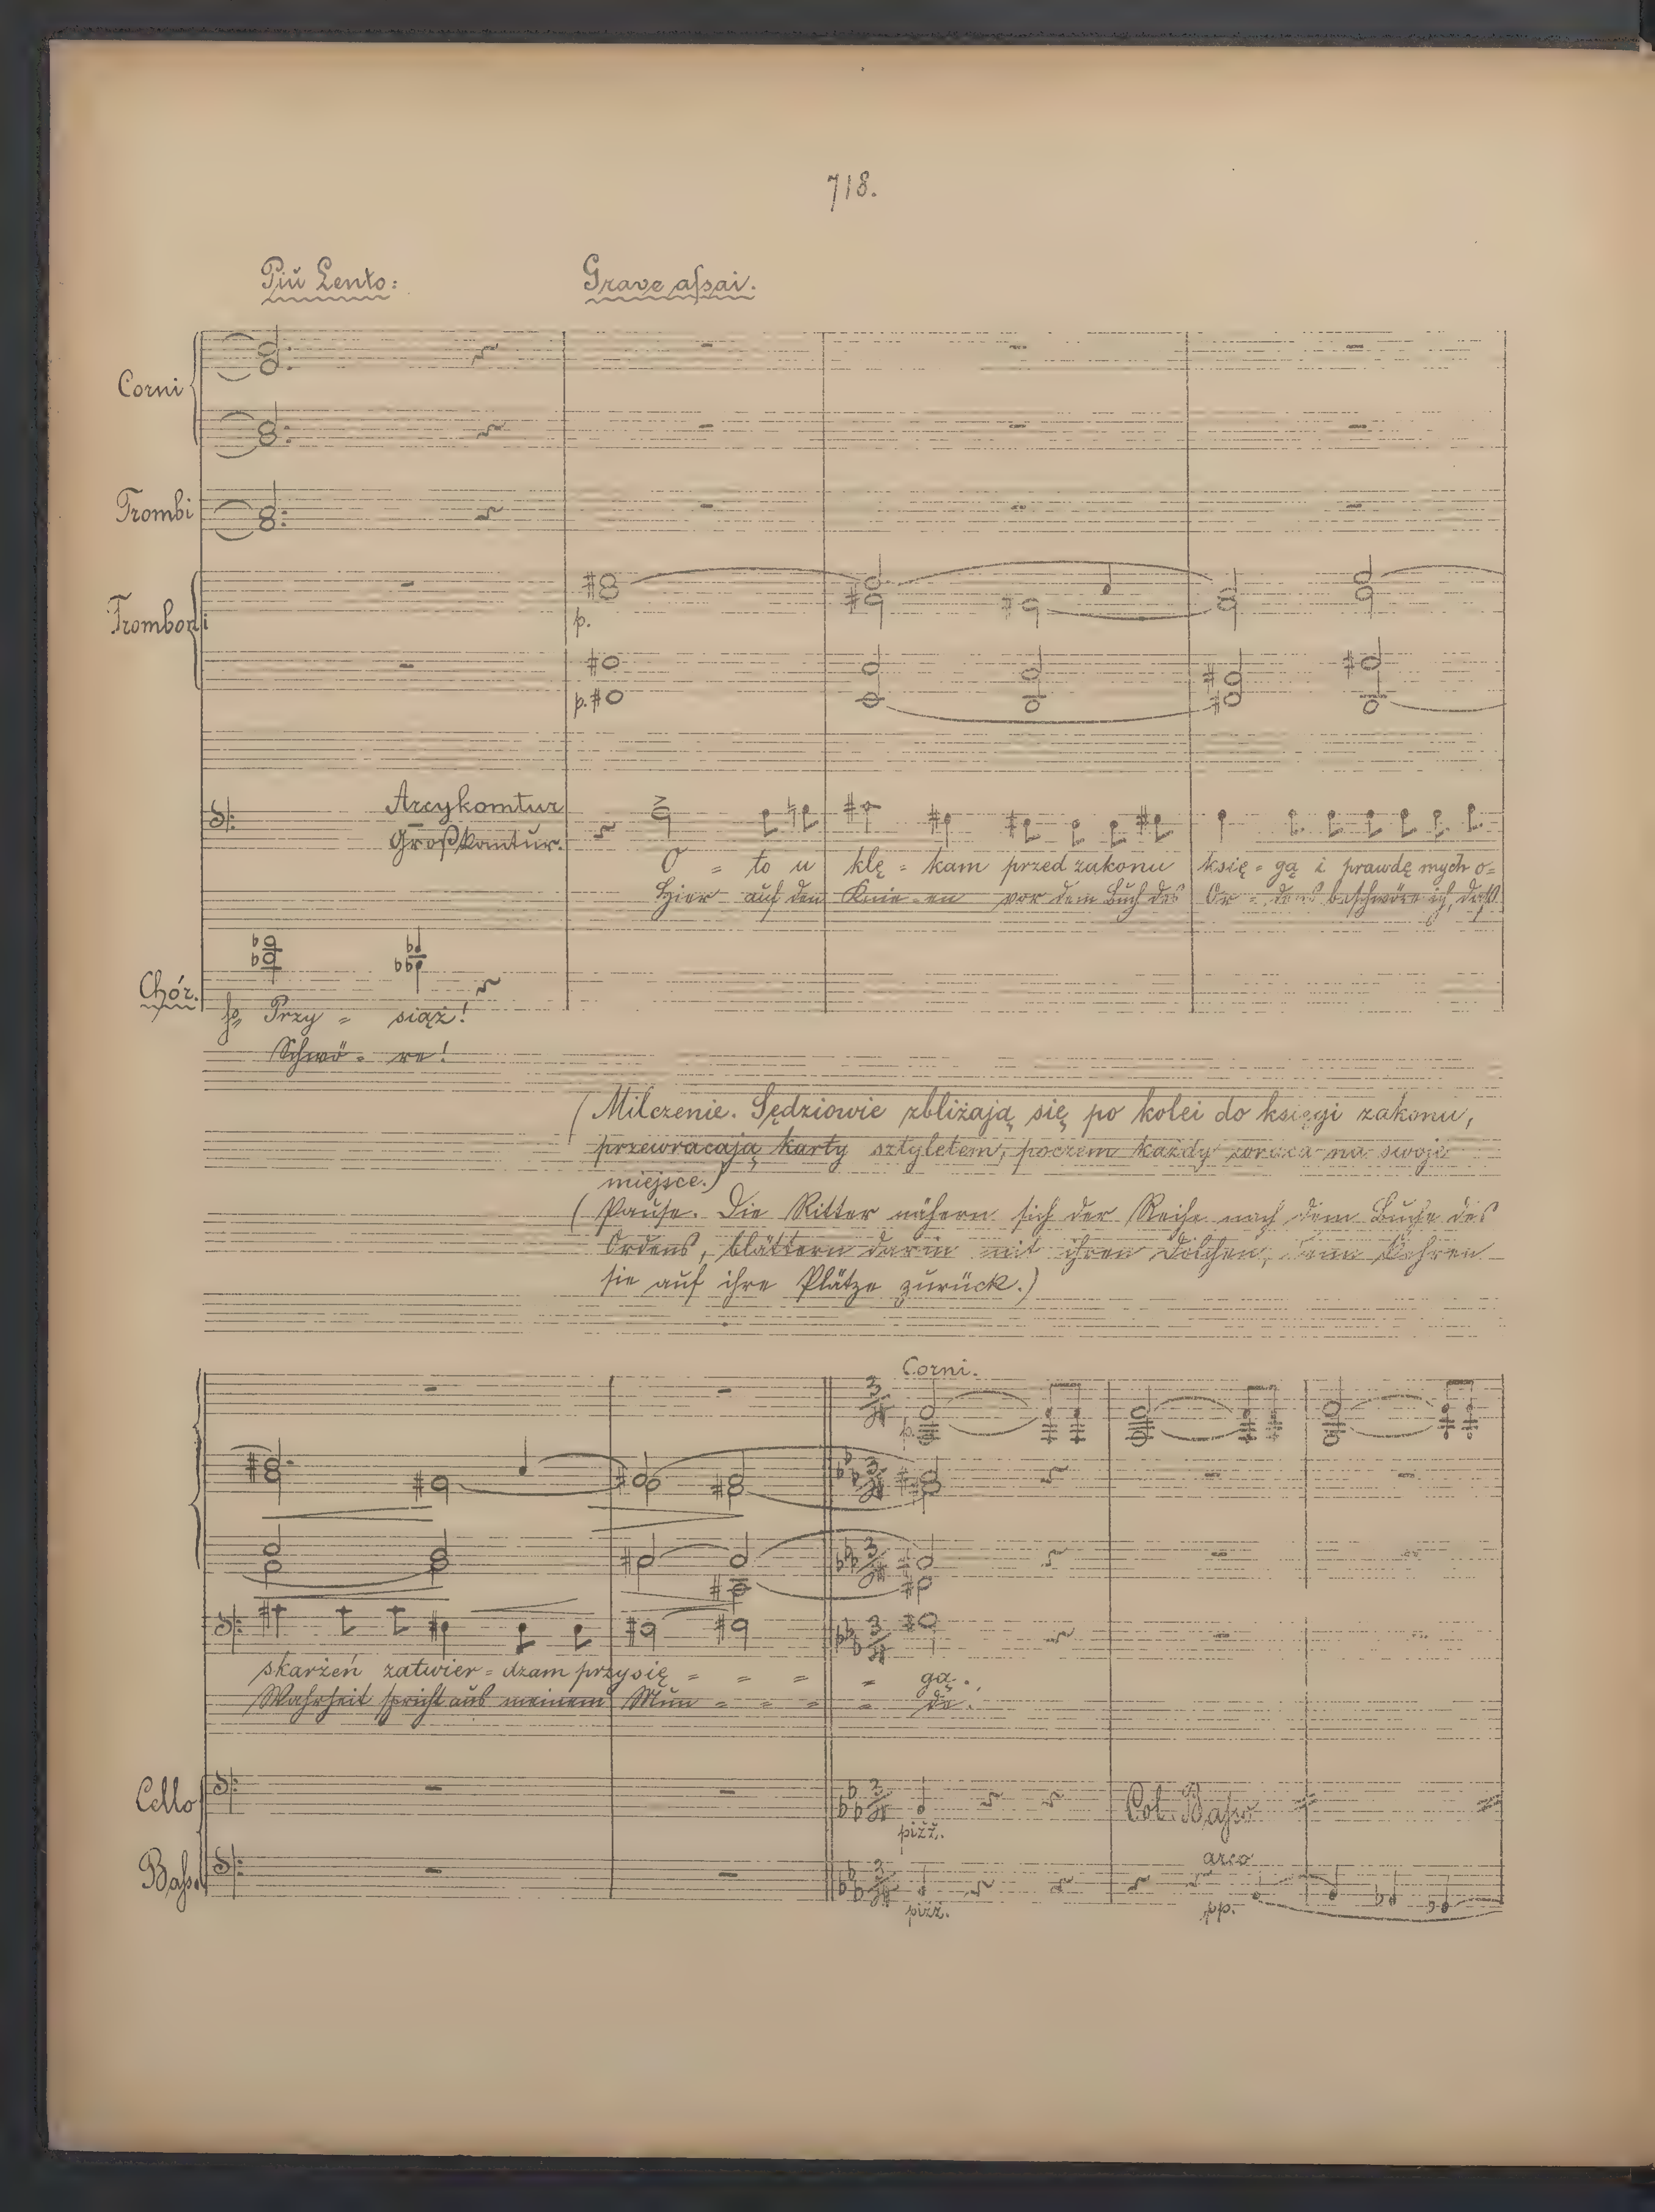 718.
Più Lento: Grave assai.
Corni
Trombi
Tromboni
p.
p.
Arcykomtur
Großkomtur.
O = to u klę = kam przed zakonu księ = gą i prawdę mych o=
Hier auf den Knie = en vor dem Buch des Or = dens beschwöre ich, daß
Chór.
Przy = siąż!
Schwö = re!
(Milczenie. Sędziowie zbliżają się po kolei do księgi zakonu,
przewracają karty sztyletem, poczem każdy wraca na swoje
miejsce.)
(Pause. Die Ritter nähern sich der Reihe nach dem Buche des
Ordens, blättern darin mit ihren Dolchen, dann kehren
sie auf ihre Plätze zurück.)
Corni.
p.
skarżeń zatwier = dzam przysię = = = = gą.
Wahrheit spricht aus meinem Mun = = = = de.
Cello
pizz.
Col Basso
Basso
pizz.
arco
pp.